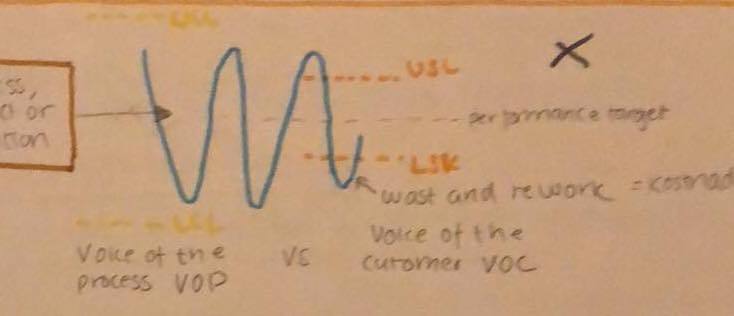 UCL
USL
ss,
or
tion
performance target
LSK
wast and rework = kostnad
LCL
Voice of the
process VOP
VS
Voice of the
cutomer VOC